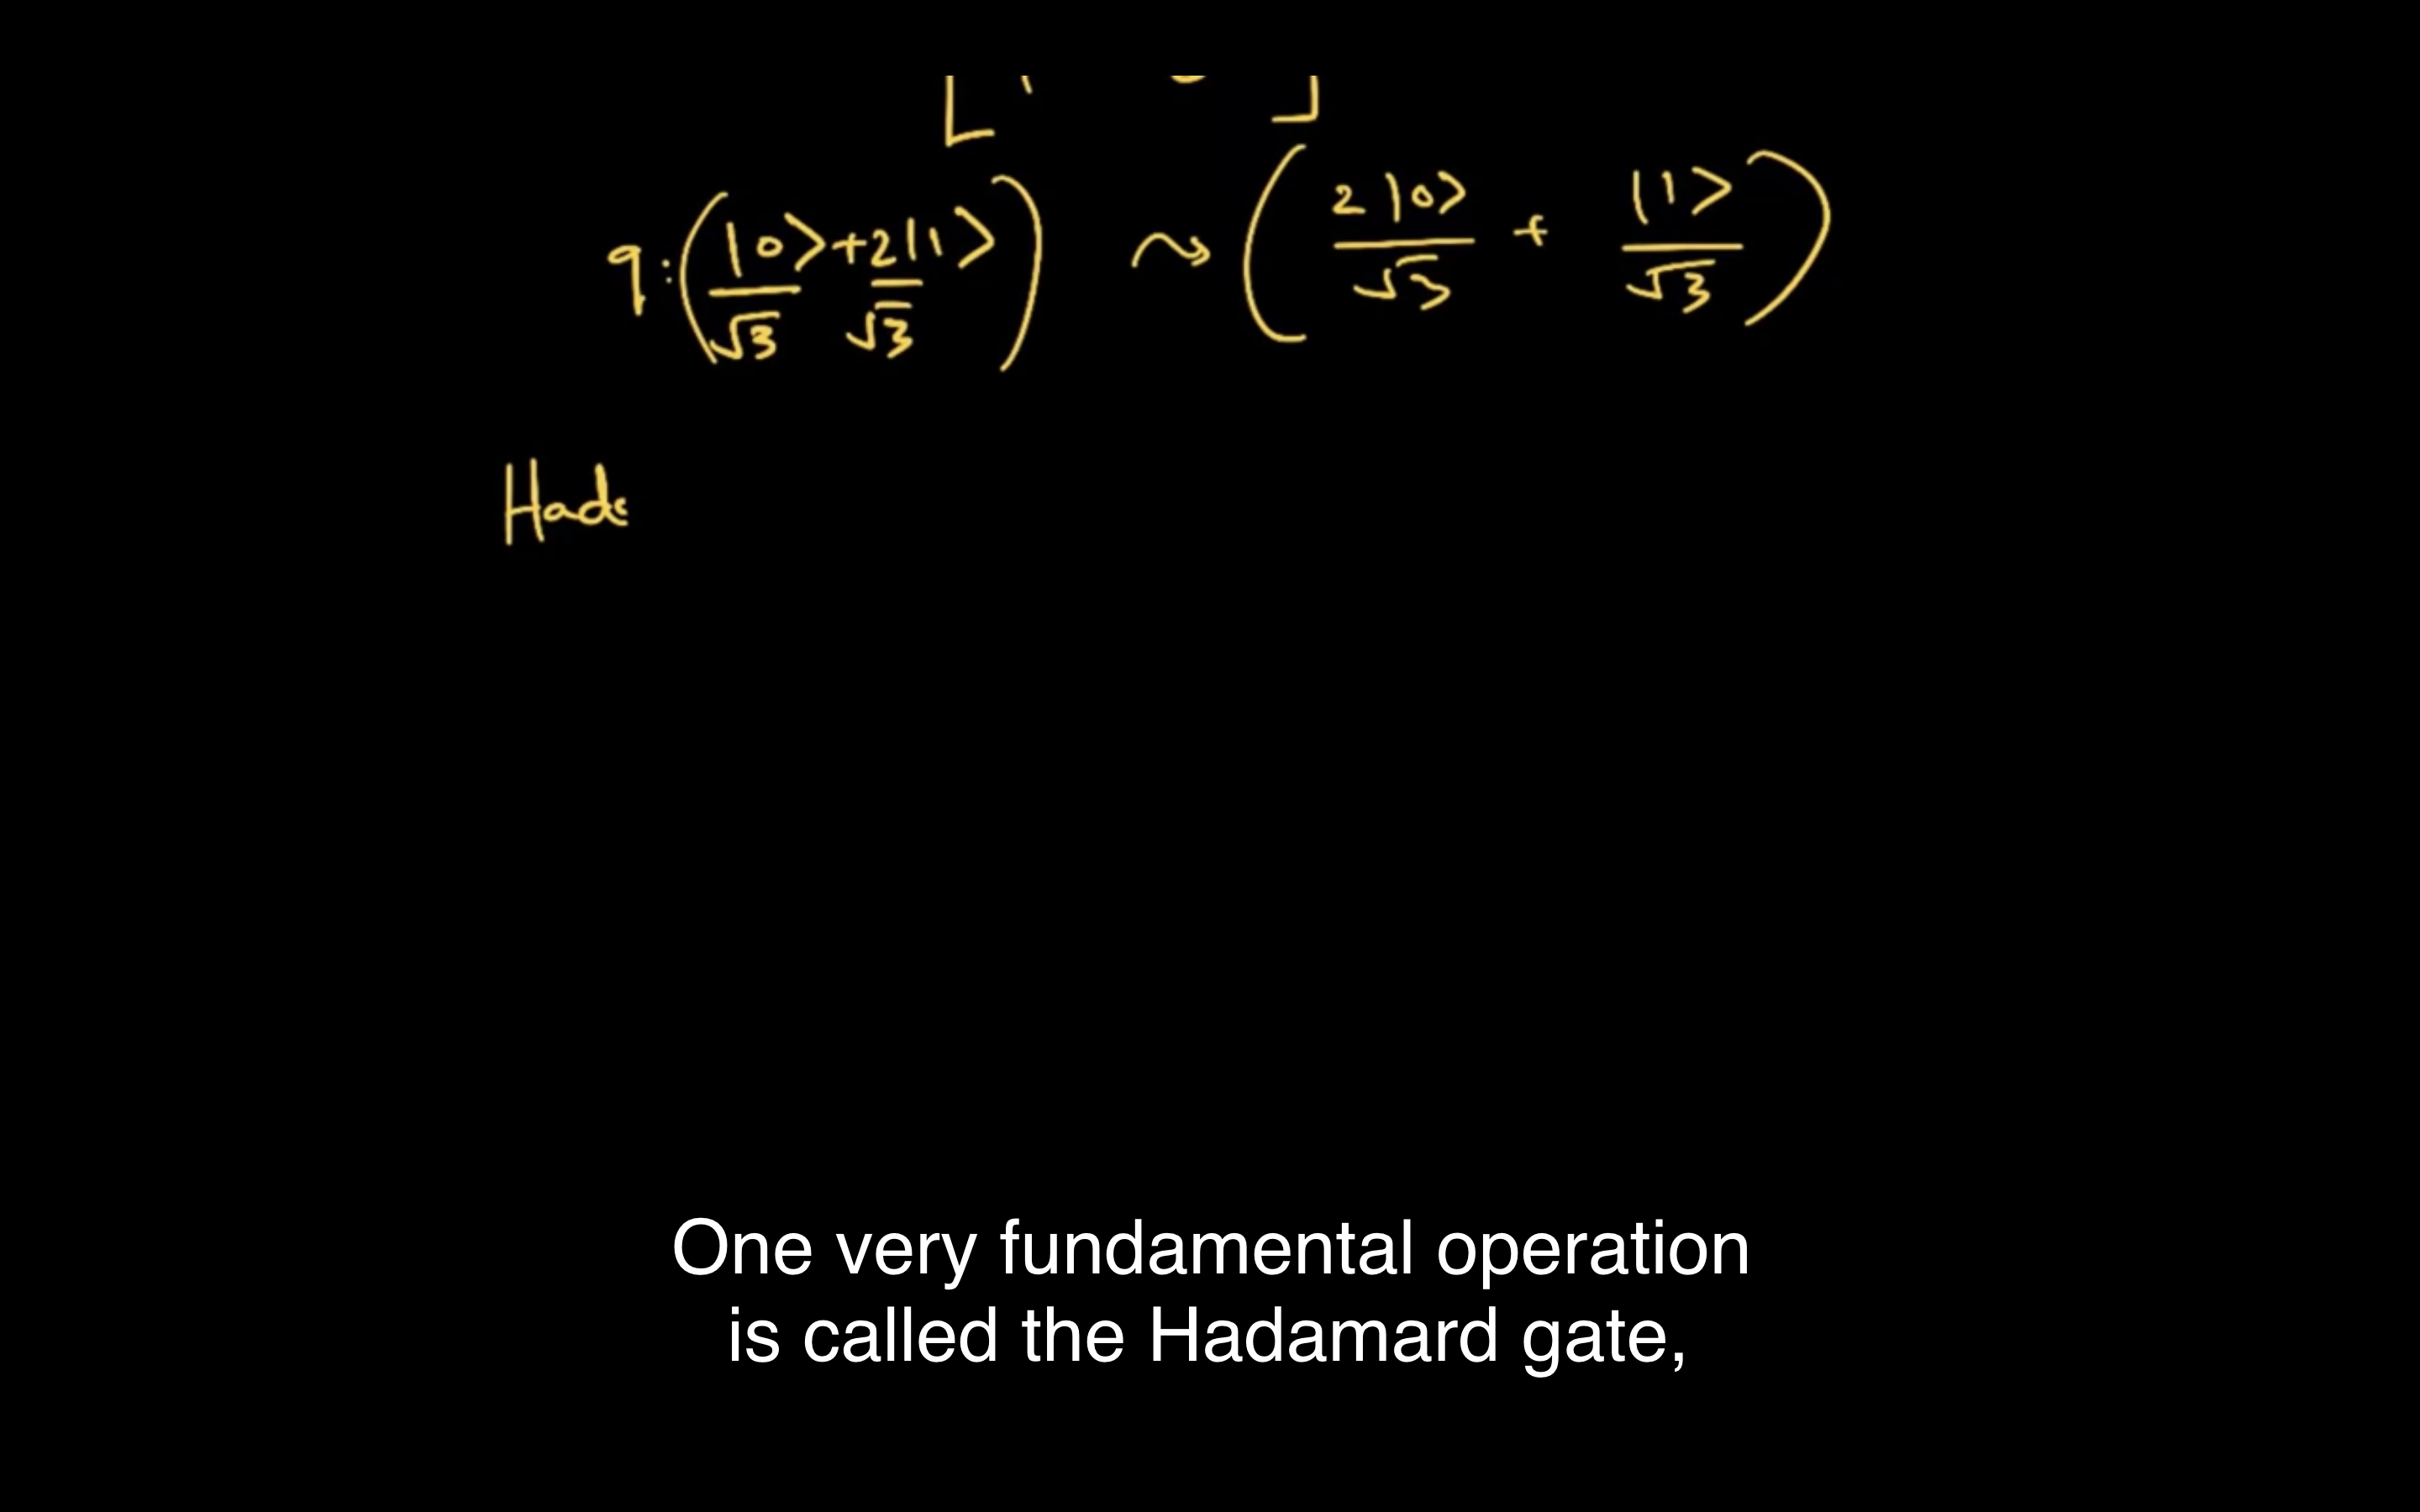 q: (|0>/√3 + 2|1>/√3) ⤳ (2|0>/√3 + |1>/√3)
Hada
One very fundamental operation
is called the Hadamard gate,